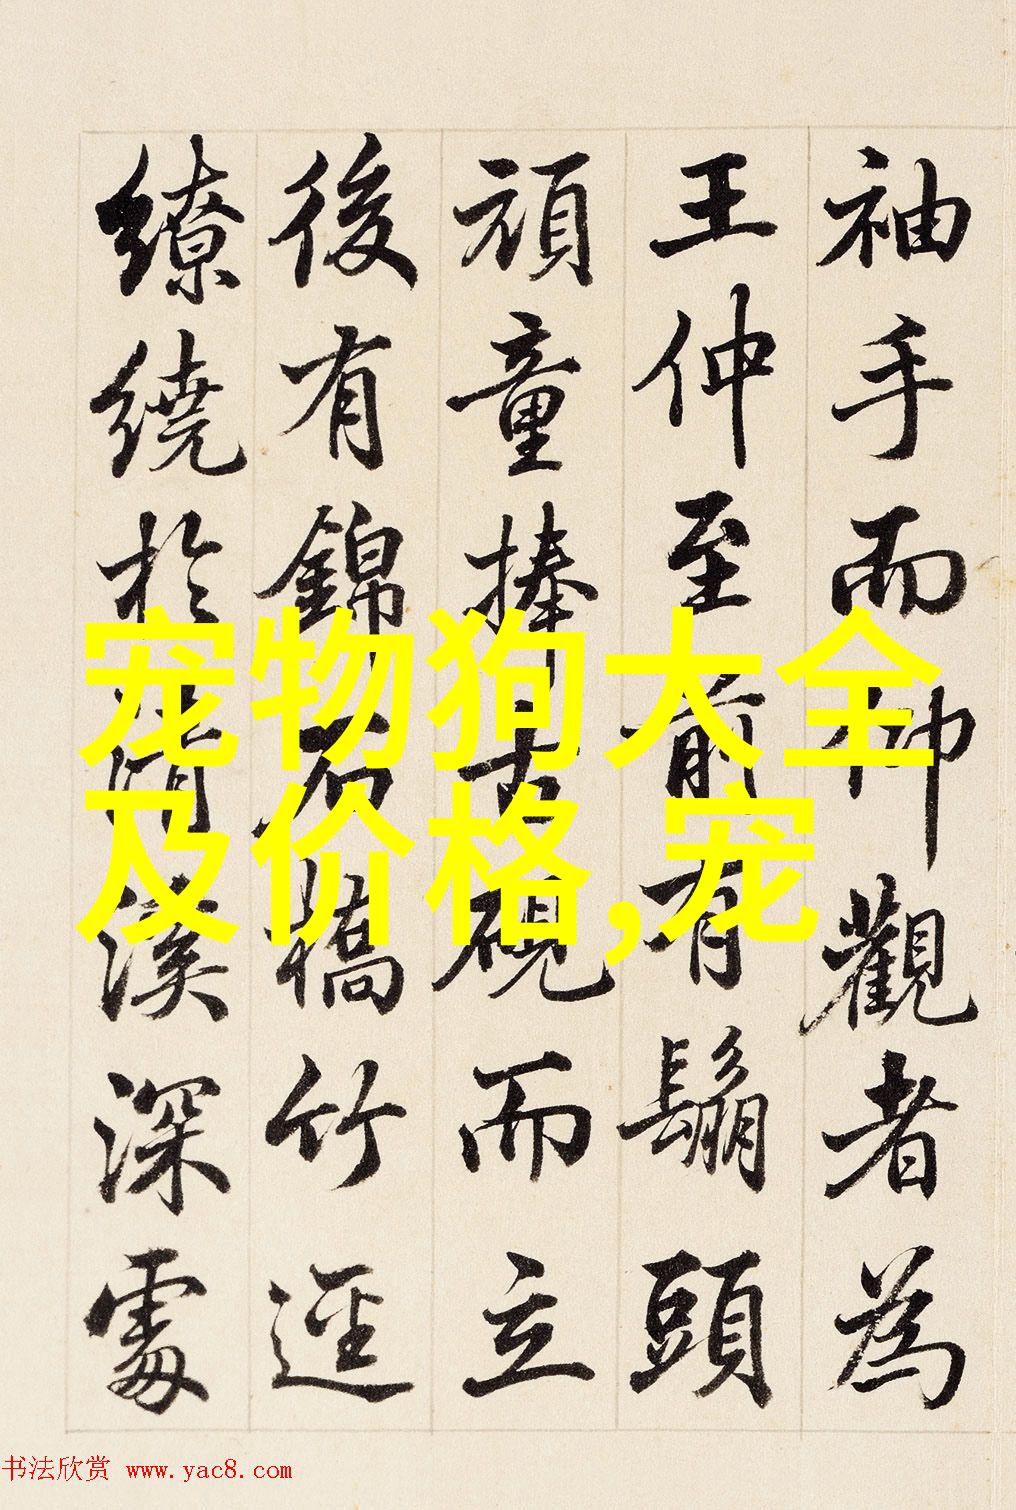 袖手而仰觀者為
王仲至前有鬅頭
頑童捧古硯而立
後有錦石橋竹逕
繚繞於清溪深處
宠物狗大全
及价格,宠
书法欣赏 www.yac8.com